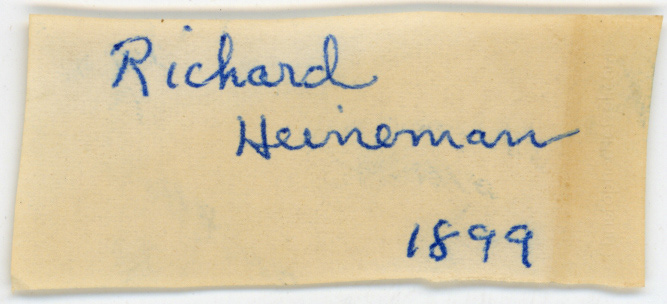 Richard
Heineman
1899